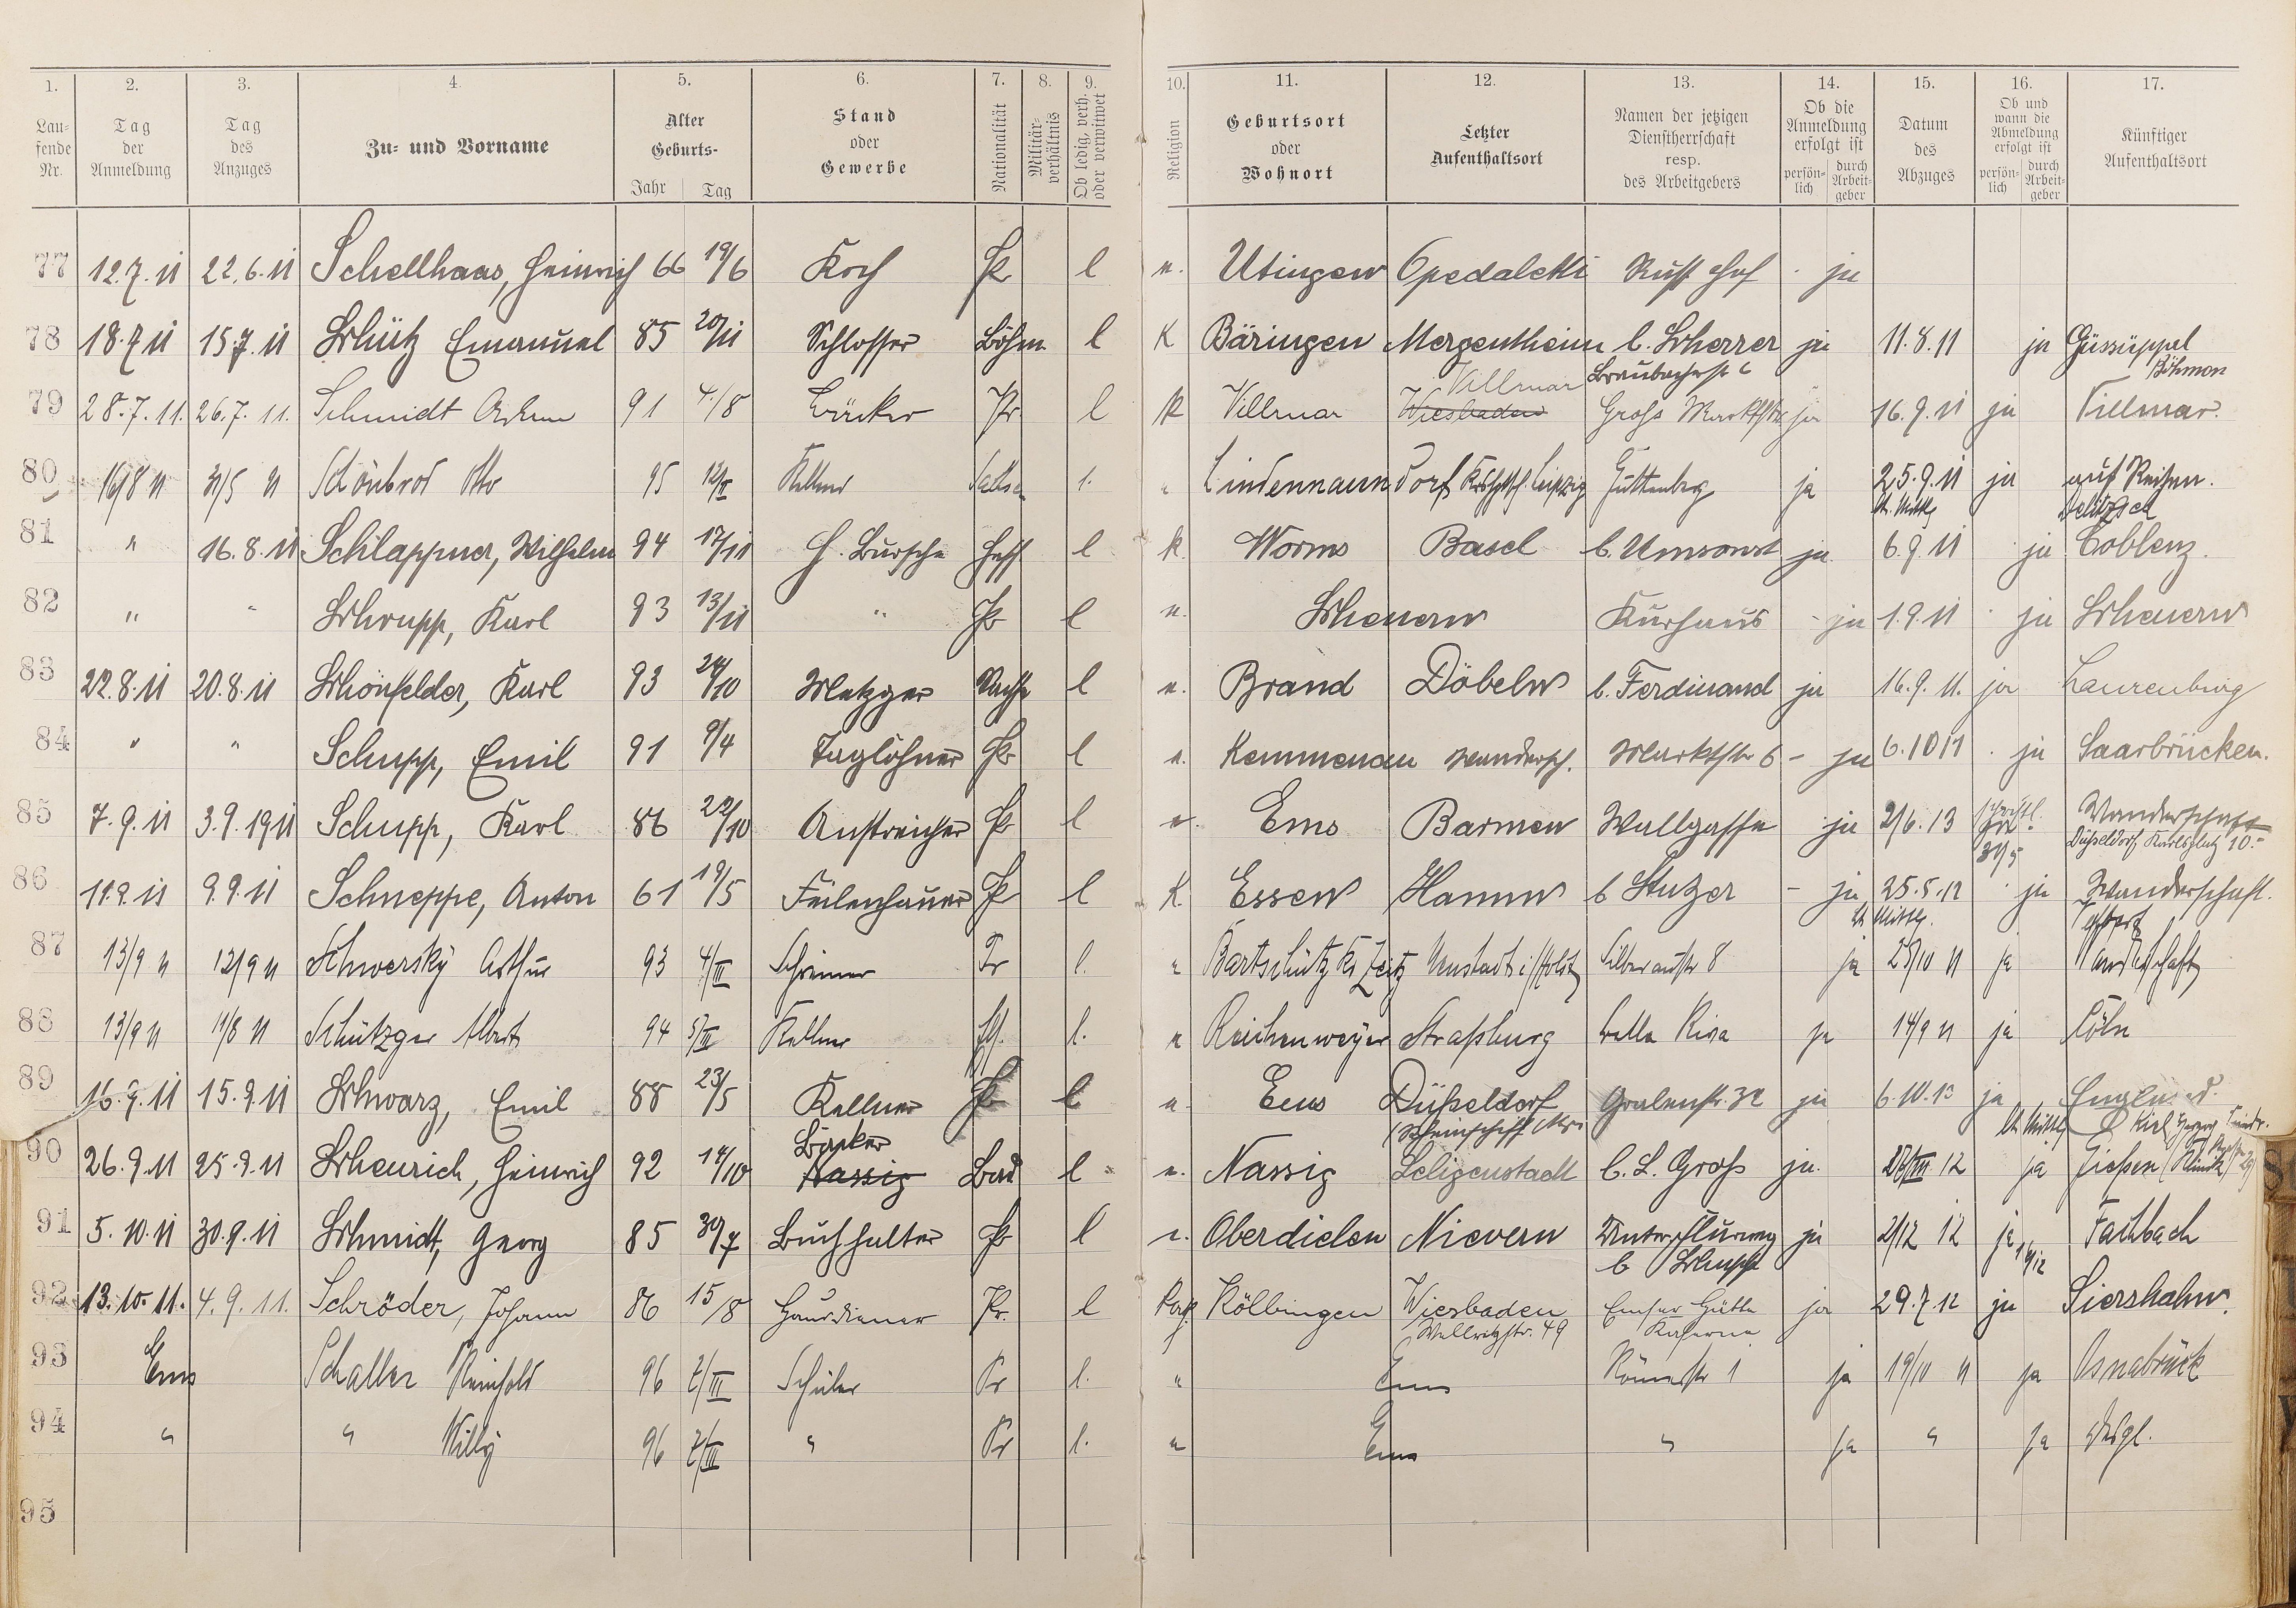 1. 2. 3. 4. 5. 6. 7. 8. 9. 10. 11. 12. 13. 14. 15. 16. 17.
Lau-fende Nr. Tag der Anmeldung Tag des Anzuges Zu- und Vorname Alter Geburts- Jahr Tag Stand oder Gewerbe Nationalität Militär-verhältnis Ob ledig, verh. oder verwitwet Religion Geburtsort oder Wohnort Letzter Aufenthaltsort Namen der jetzigen Dienstherrschaft resp. des Arbeitgebers Ob die Anmeldung erfolgt ist persön-lich durch Arbeit-geber Datum des Abzuges Ob und wann die Abmeldung erfolgt ist persön-lich durch Arbeit-geber Künftiger Aufenthaltsort
77 12.7.11 22.6.11 Schellhaas, Heinrich 66 19/6 Koch Pr l e. Usingen Ospedaletti Russ Hof - ja
78 18.7.11 15.7.11 Schütz Emanuel 85 20/11 Schlosser Böhm. l K Bäringen Mergentheim b. Scherrer ja 11.8.11 ja
Braubacherstr 6 Böhmen
79 28.7.11. 26.7.11. Schmidt Adam 91 4/8 Bäcker Pr. l K Villmar Wiesbaden Villmar Groß Marktstr ja 16.9.11 ja Villmar.
80 16/8 11 31/5 11 Schönbrod Otto 95 12/II Kellner Sachsen l. e Lindennaundorf Leipzig Guttenberg ja 25.9.11 ja auf Reisen.
lt. Mittlg Delitzsch
81 " 16.8.11 Schlappner, Wilhelm 94 17/11 H. Bursche Hess l k. Worms Basel b. Umsonst ja 6.9.11 ja Coblenz.
82 " " Schrupp, Karl 93 13/11 " Pr l e. Scheuern Kurhaus - ja 1.9.11 - ja Scheuern
83 22.8.11 20.8.11 Schönfelder, Karl 93 24/10 Metzger Sachse l e. Brand Döbeln b. Ferdinand ja 16.9.11. ja Laurenburg
84 " " Schupp, Emil 91 9/4 Taglöhner Pr l e. Kemmenau Wandersch. Marktstr 6 - ja 6.10 11 - ja Saarbrücken.
85 7.9.11 3.9.1911 Schupp, Karl 86 22/10 Anstreicher Pr l e. Ems Barmen Wallgasse ja 2/6.13 schriftl. ja 31/5 Wanderschaft
Düsseldorf, Karlsplatz 10.-
86 11.9.11 9.9.11 Schneppe, Anton 61 19/5 Feilenhauer Pr l K Essen Hamm b Stutzer - ja 25.5.12 - ja Wanderschaft.
lt Mittlg.
87 13/9 11 12/9 11 Schwersky Arthur 93 4/III Schreiner Pr l. e Bartschütz Kr Zeitz Neustadt i/Holst Silberaustr 8 ja 25/10 11 ja Wanderschaft
88 13/9 11 11/8 11 Schützger Albert 94 5/III Kellner l. e Reichenweyer Straßburg bella Riva ja 14/9 11 ja Cöln
89 16.9.11 15.9.11 Schwarz, Emil 88 23/5 Kellner Pr l e. Ems Düsseldorf Grabenstr. 32 ja 6.10.13 ja England.
90 26.9.11 25.9.11 Schenrich, Heinrich 92 14/10 Bäcker Nassig Bad l e. Nassig Seligenstadt b. L. Groß ja. 12 ja Gießen
lt. Mittlg
91 5.10.11 30.9.11 Schmidt, Georg 85 30/7 Buchhalter Pr l e. Oberdielen Nievern Winterflurweg b Schupp ja 2/12 12 ja Fachbach
92 13.10.11. 4.9.11. Schröder, Johann 86 15/8 Hausdiener Pr. l Kath Kölbingen Wiesbaden Wellritzstr. 49 Emser Hütte Kaserne ja 29.7.12 ja Siershahn.
93 Ems Schaller Reinhold 96 2/III Schüler Pr l. " Ems Römerstr 1 ja 19/10 11 ja Osnabrück
94 " " Willy 96 2/III " Pr l. e Ems " ja " ja desgl.
95